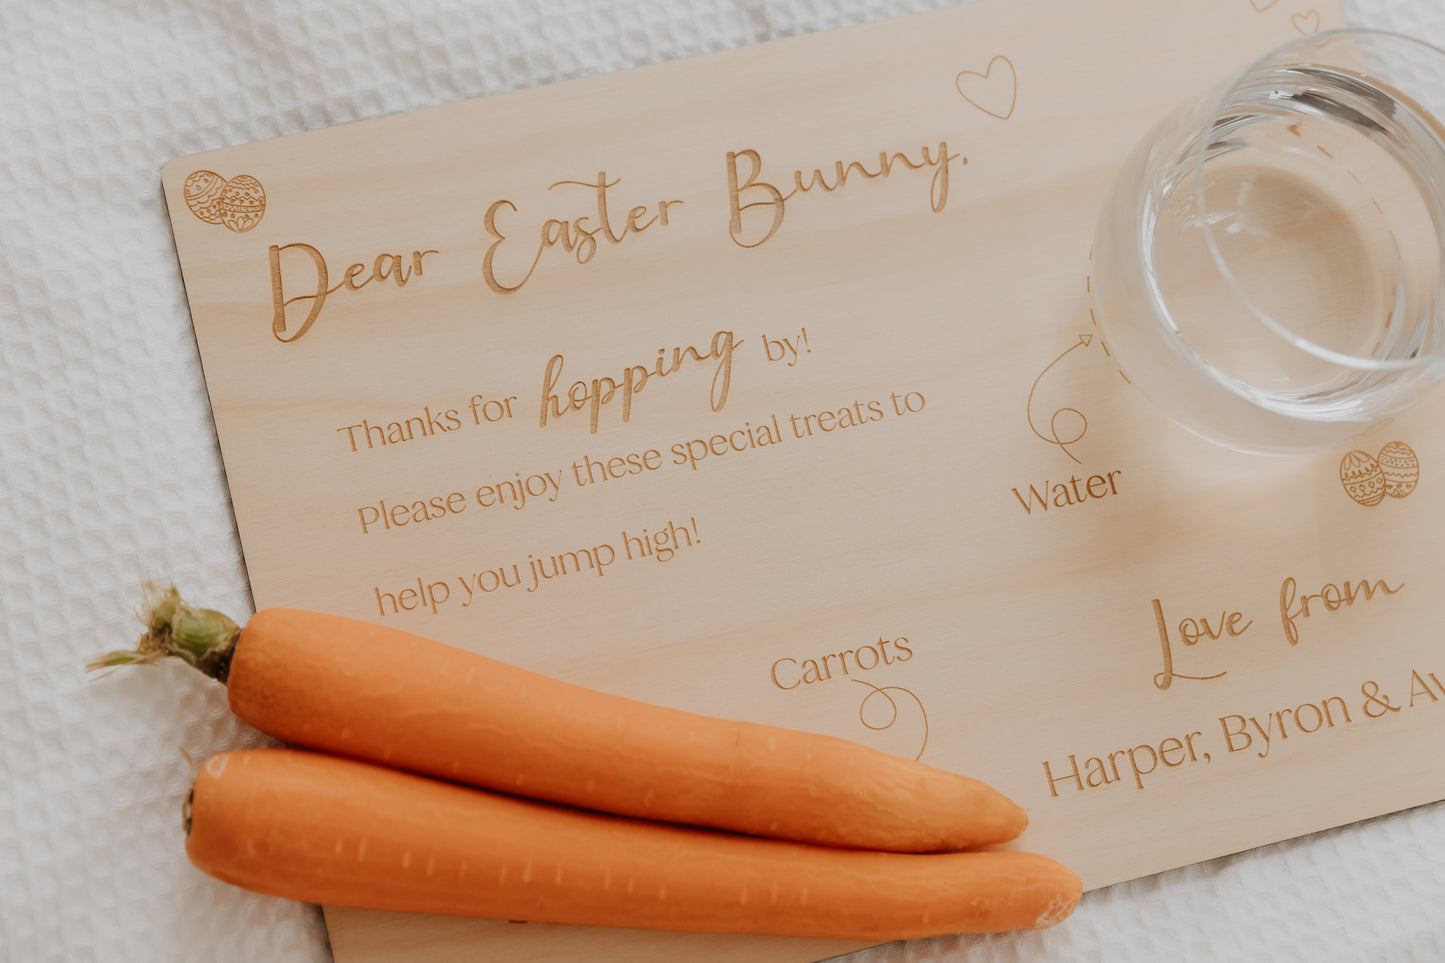 Dear Easter Bunny,
Thanks for hopping by!
Please enjoy these special treats to
help you jump high!
Water
Carrots
Love from
Harper, Byron &